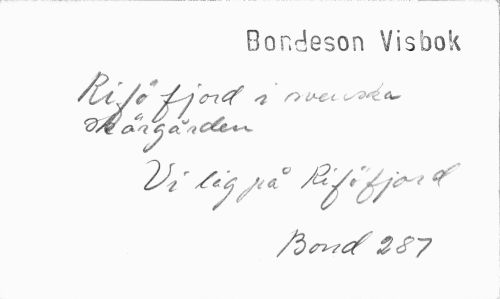 Bondeson Visbok
Rifö fjord i svenska
skärgården
Vi låg på Riföfjord
Bond 287